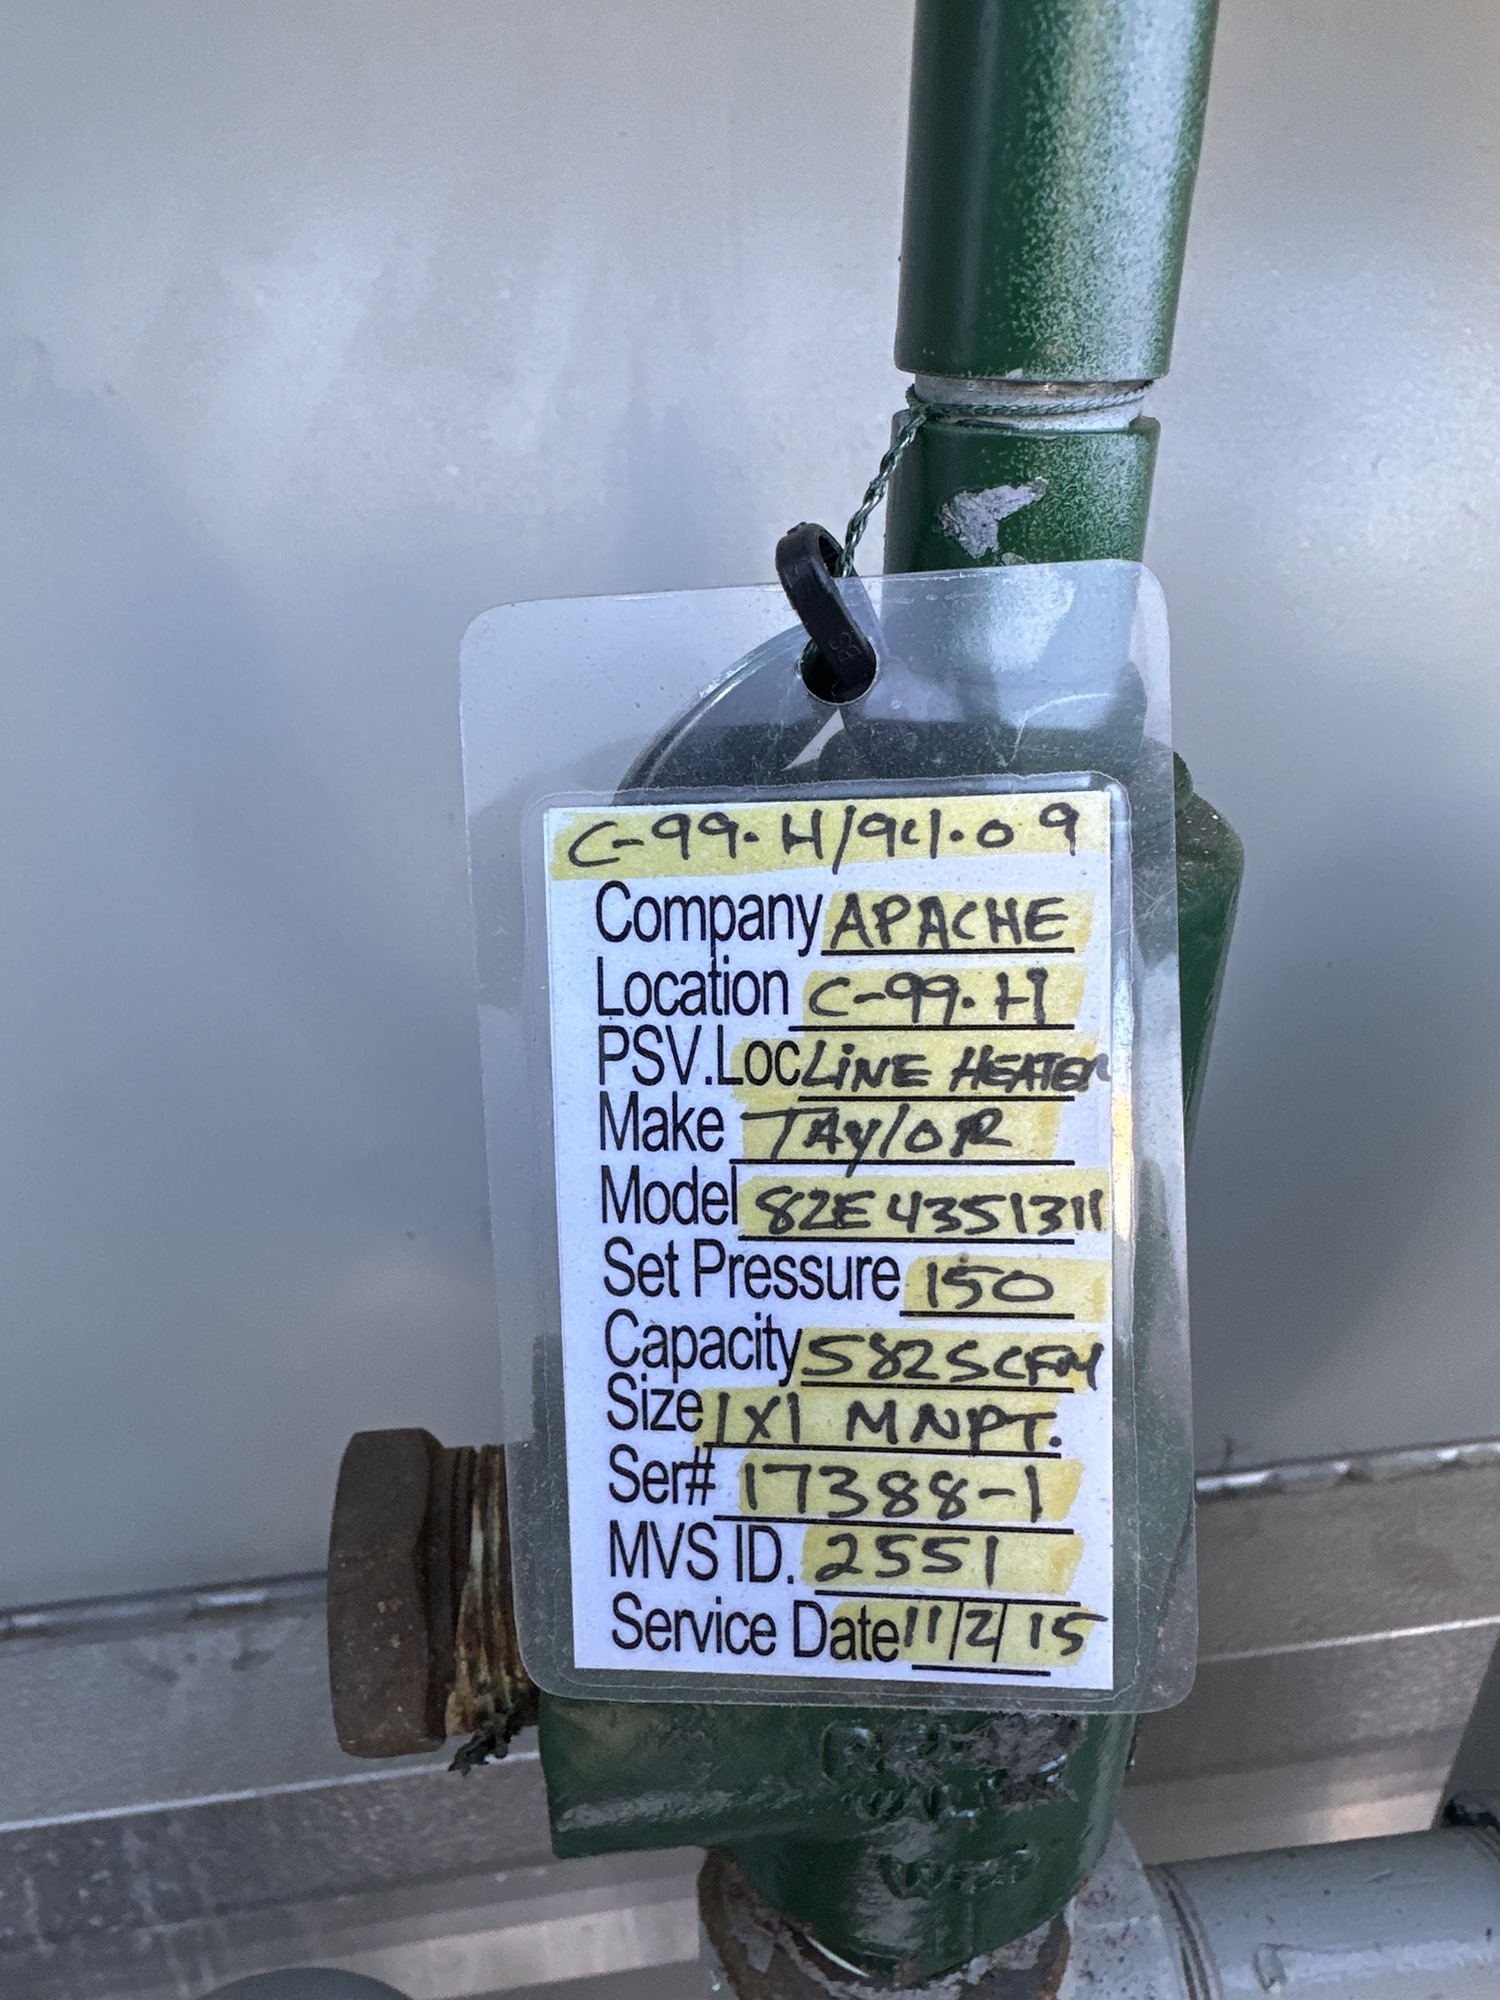 C-99.H/94-I.09
Company APACHE
Location C-99.H
PSV.Loc LiNE HEATER
Make TAylOR
Model 82E4351311
Set Pressure 150
Capacity 582SCFM
Size 1X1 MNPT.
Ser# 17388-1
MVS ID. 2551
Service Date 11/2/15